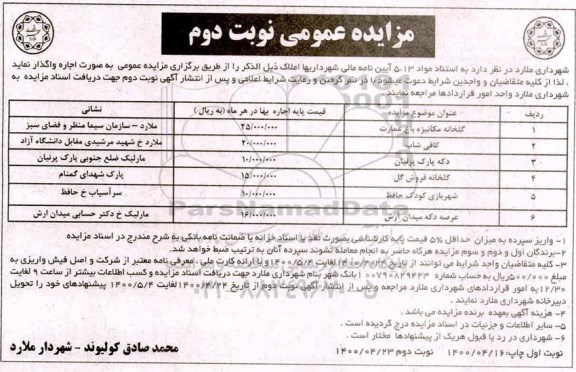 مزایده عمومی نوبت دوم
شهرداری ملارد در نظر دارد به استناد مواد 13.5 آیین نامه مالی شهرداریها املاک ذیل الذکر را از طریق برگزاری مزایده عمومی به صورت اجاره واگذار نماید
. لذا از کلیه متقاضیان و واجدین شرایط دعوت میشود با در نظر گرفتن و رعایت شرایط اعلامی و پس از انتشار آگهی نوبت دوم جهت دریافت اسناد مزایده به
شهرداری ملارد واحد امور قراردادها مراجعه نمایند.
ردیف عنوان موضوع مزایده قیمت پایه اجاره بها در هر ماه (به ریال) نشانی
۱ گلخانه مکانیزه باغ عمارت ۲۵/۰۰۰/۰۰۰ ملارد – سازمان سیما منظر و فضای سبز
۲ کافی شاپ ۲۰/۰۰۰/۰۰۰ ملارد خ شهید مرشیدی مقابل دانشگاه آزاد
۳ دکه پارک پرنیان ۱۰/۰۰۰/۰۰۰ مارلیک ضلع جنوبی پارک پرنیان
۴ گلخانه فروش گل ۱۵/۰۰۰/۰۰۰ پارک شهدای گمنام
۵ شهربازی کودک حافظ ۱۰/۰۰۰/۰۰۰ سرآسیاب خ حافظ
۶ عرصه دکه میدان ارش ۱۶/۰۰۰/۰۰۰ مارلیک خ دکتر حسابی میدان ارش
ParsNamadData
۱- واریز سپرده به میزان حداقل ۵% قیمت پایه کارشناسی بصورت نقد یا اسناد خزانه یا ضمانت نامه بانکی به شرح مندرج در اسناد مزایده
۲- برندگان اول و دوم و سوم مزایده هرگاه حاضر به انجام معامله نشوند سپرده آنان به ترتیب ضبط خواهد شد.
۳- کلیه متقاضیان واجد شرایط می توانند از تاریخ ۱۴۰۰/۴/۲۴ لغایت ۱۴۰۰/۵/۴ و با ارائه کارت ملی ، معرفی نامه معتبر از شرکت و اصل فیش واریزی به
مبلغ ۵۰۰/۰۰۰ ریال به حساب شماره ۱۰۰۷۹۰۸۲۹۴۴۳ بانک شهر بنام شهرداری ملارد جهت دریافت اسناد مزایده و کسب اطلاعات بیشتر از ساعت ۹ لغایت
۱۲/۳۰ به امور قراردادهای شهرداری ملارد مراجعه و پس از انتشار آگهی نوبت دوم از تاریخ ۱۴۰۰/۴/۲۴ لغایت ۱۴۰۰/۵/۴ پیشنهادهای خود را تحویل
دبیرخانه شهرداری ملارد نمایند.
۴- هزینه آگهی بعهده برنده مزایده می باشد.
۵- سایر اطلاعات و جزییات در اسناد مزایده درج گردیده است.
۶- شهرداری در رد یا قبول هریک از پیشنهادها مختار است.
نوبت اول چاپ: ۱۴۰۰/۰۴/۱۶ نوبت دوم ۱۴۰۰/۰۴/۲۳
محمد صادق کولیوند – شهردار ملارد